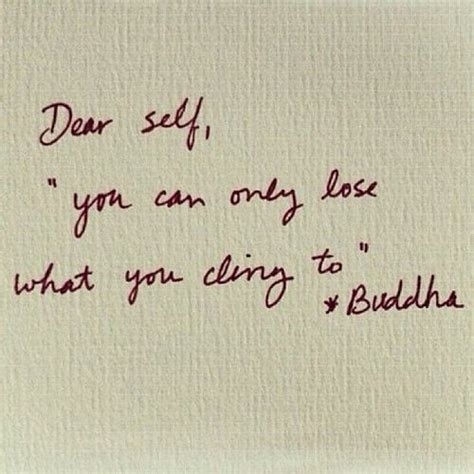 Dear self,
"you can only lose
what you cling to"
* Buddha